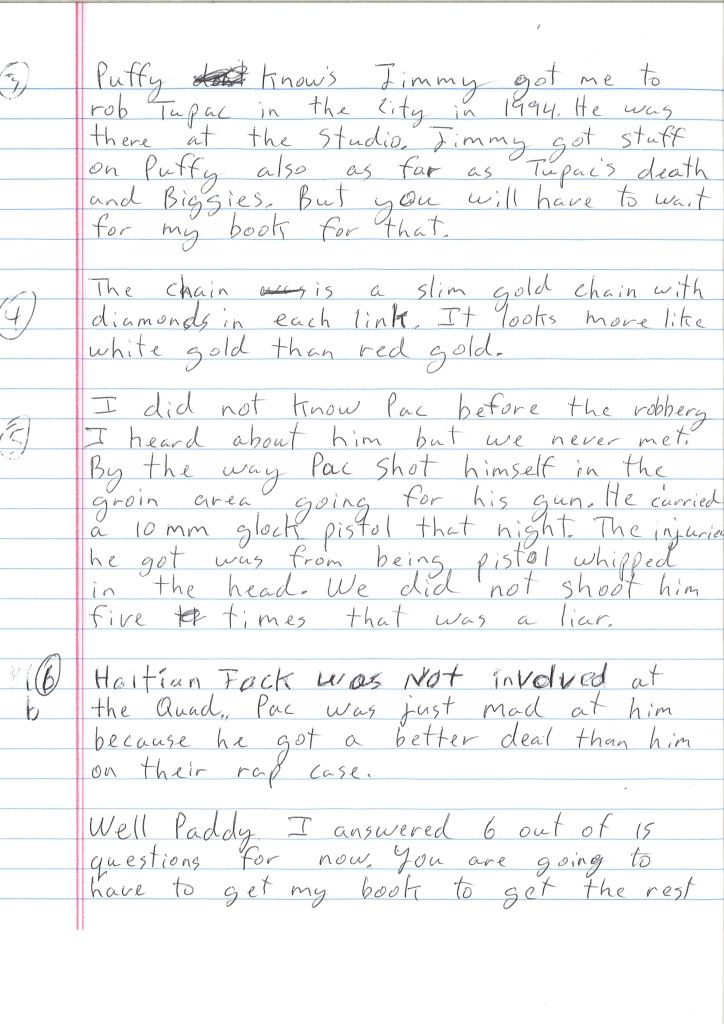 3) Puffy know's Jimmy got me to
rob Tupac in the city in 1994. He was
there at the studio. Jimmy got stuff
on Puffy also as far as Tupac's death
and Biggies. But you will have to wait
for my book for that.
4 The chain is a slim gold chain with
diamonds in each link. It looks more like
white gold than red gold.
5) I did not know Pac before the robbery
I heard about him but we never met.
By the way Pac shot himself in the
groin area going for his gun. He carried
a 10 mm glock pistol that night. The injuries
he got was from being pistol whipped
in the head. We did not shoot him
five times that was a liar.
6 Haitian Jack was Not involved at
b the Quad., Pac was just mad at him
because he got a better deal than him
on their rap case.
Well Paddy I answered 6 out of 15
questions for now. You are going to
have to get my book to get the rest